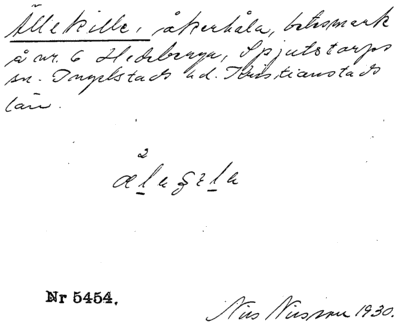 Ällekille, åkerhåla, betesmark
å nr. 6 Hedeberga, Spjutstorps
sn. Ingelstads hd. Kristianstads
län.
2
ælagɩla
Nr 5454.
Nils Nilsson 1930.